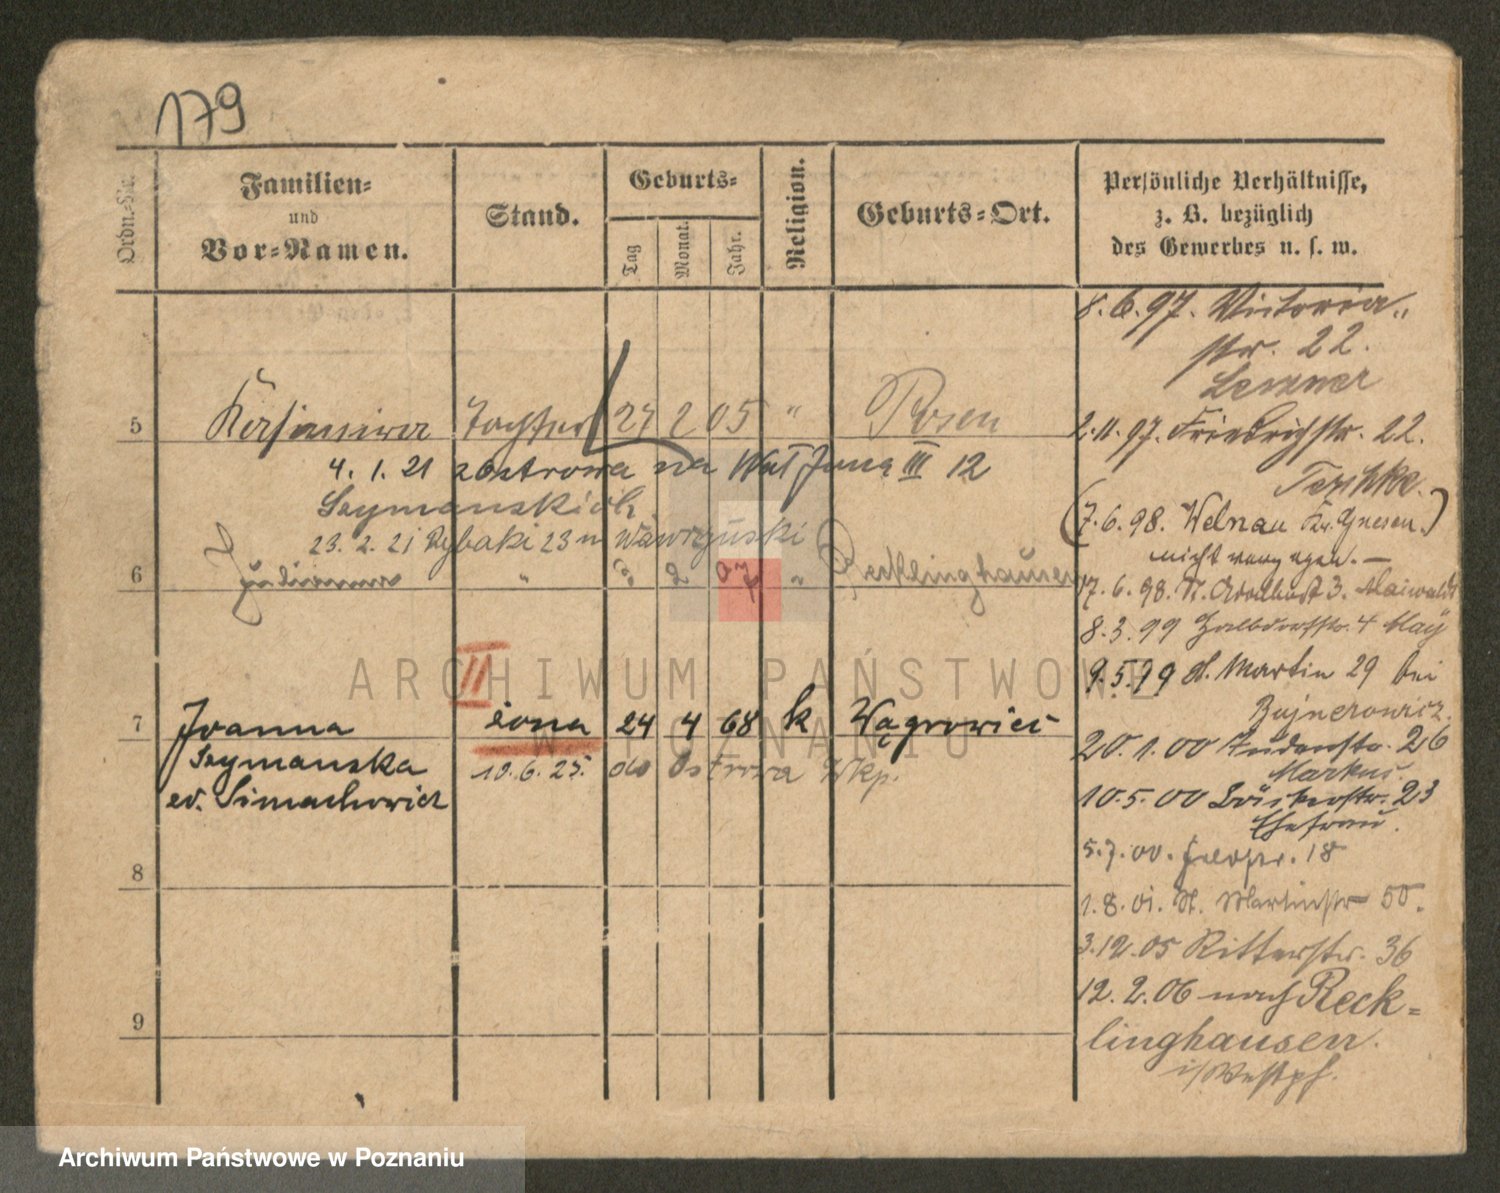 179
Ordn.-Nr.
Familien-
und
Vor-Namen.
Stand.
Geburts-
Tag
Monat.
Jahr.
Religion.
Geburts-Ort.
Persönliche Verhältnisse,
z. B. bezüglich
des Gewerbes u. s. w.
8.6.97. Victoria-
str. 22.
5 Kasimira Tochter 24 2 05 " Posen
2.11.97. Friedrichstr. 22.
4. 1. 21 z Ostrowa na III 12
Szymanskich
(7.6.98. Welnau Kr. Gnesen.)
nicht
23. 2. 21 Rybaki 23 u Wawrzyński
6 " 3 2 07 " Recklinghausen
17.6.98. St. Adalbert 3.
8.3.99 4 May
II
9.5.99 St. Martin 29 bei
7 Joanna żona 24 4 68 k Wągrowiec
Szymanska 10.6.25. do Ostrowa Wkp.
20.1.00 26
Markus.
ed. Simachowicz
10.5.00 23
Ehefrau.
5.7.00. 18
8
1.8.01. St. Martinstr 50.
3.12.05 Ritterstr. 36
12.2.06 nach Reck-
9
linghausen.
i/Westpf.
ARCHIWUM PAŃSTWOWE
W POZNANIU
Archiwum Państwowe w Poznaniu